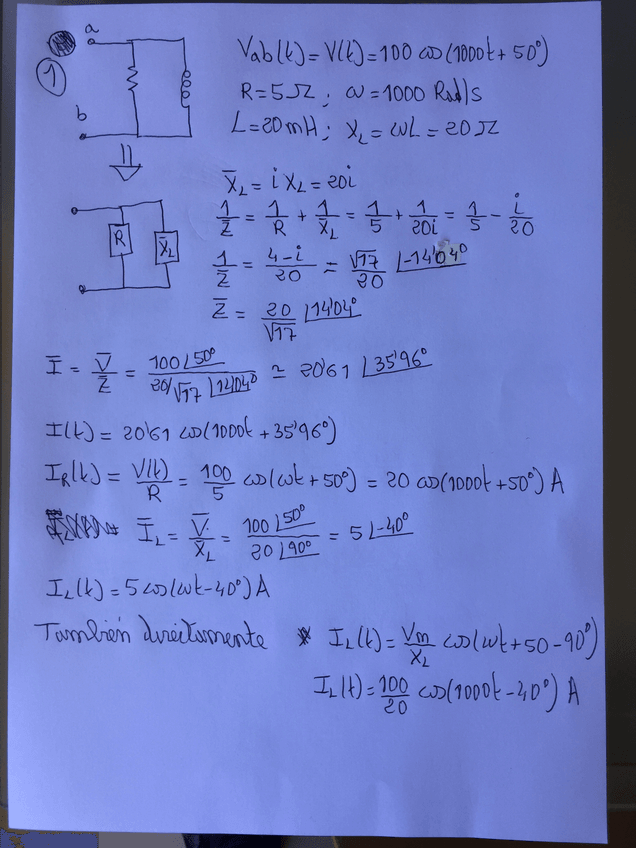 a
1
b
Vab(t) = V(t) = 100 cos(1000t + 50°)
R = 5 Ω ; ω = 1000 Rad/s
L = 20 mH ; X_L = ωL = 20 Ω
X̄_L = i X_L = 20i
R
X̄_L
1/Z̄ = 1/R + 1/X̄_L = 1/5 + 1/20i = 1/5 - i/20
1/Z̄ = (4-i)/20 = √17/20 ∠-14'04°
Z̄ = 20/√17 ∠14'04°
Ī = V̄/Z̄ = 100∠50° / (20/√17 ∠14'04°) ≃ 20'61 ∠35'96°
I(t) = 20'61 cos(1000t + 35'96°)
I_R(t) = V(t)/R = 100/5 cos(ωt + 50°) = 20 cos(1000t + 50°) A
Ī_L = V̄/X̄_L = 100∠50° / 20∠90° = 5∠-40°
I_L(t) = 5 cos(ωt - 40°) A
También directamente I_L(t) = Vm/X_L cos(ωt + 50 - 90°)
I_L(t) = 100/20 cos(1000t - 40°) A